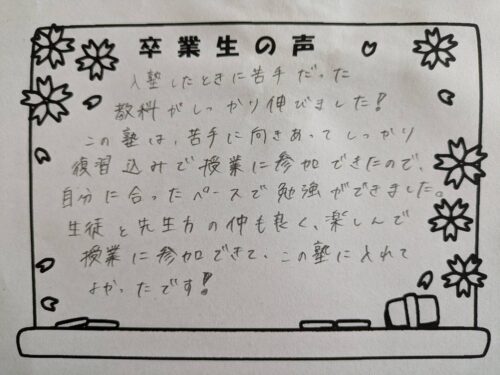 卒業生の声
入塾したときに苦手だった
教科がしっかり伸びました!
この塾は、苦手に向きあってしっかり
復習込みで授業に参加できたので、
自分に合ったペースで勉強ができました。
生徒と先生方の仲も良く、楽しんで
授業に参加できて、この塾に入れて
よかったです!